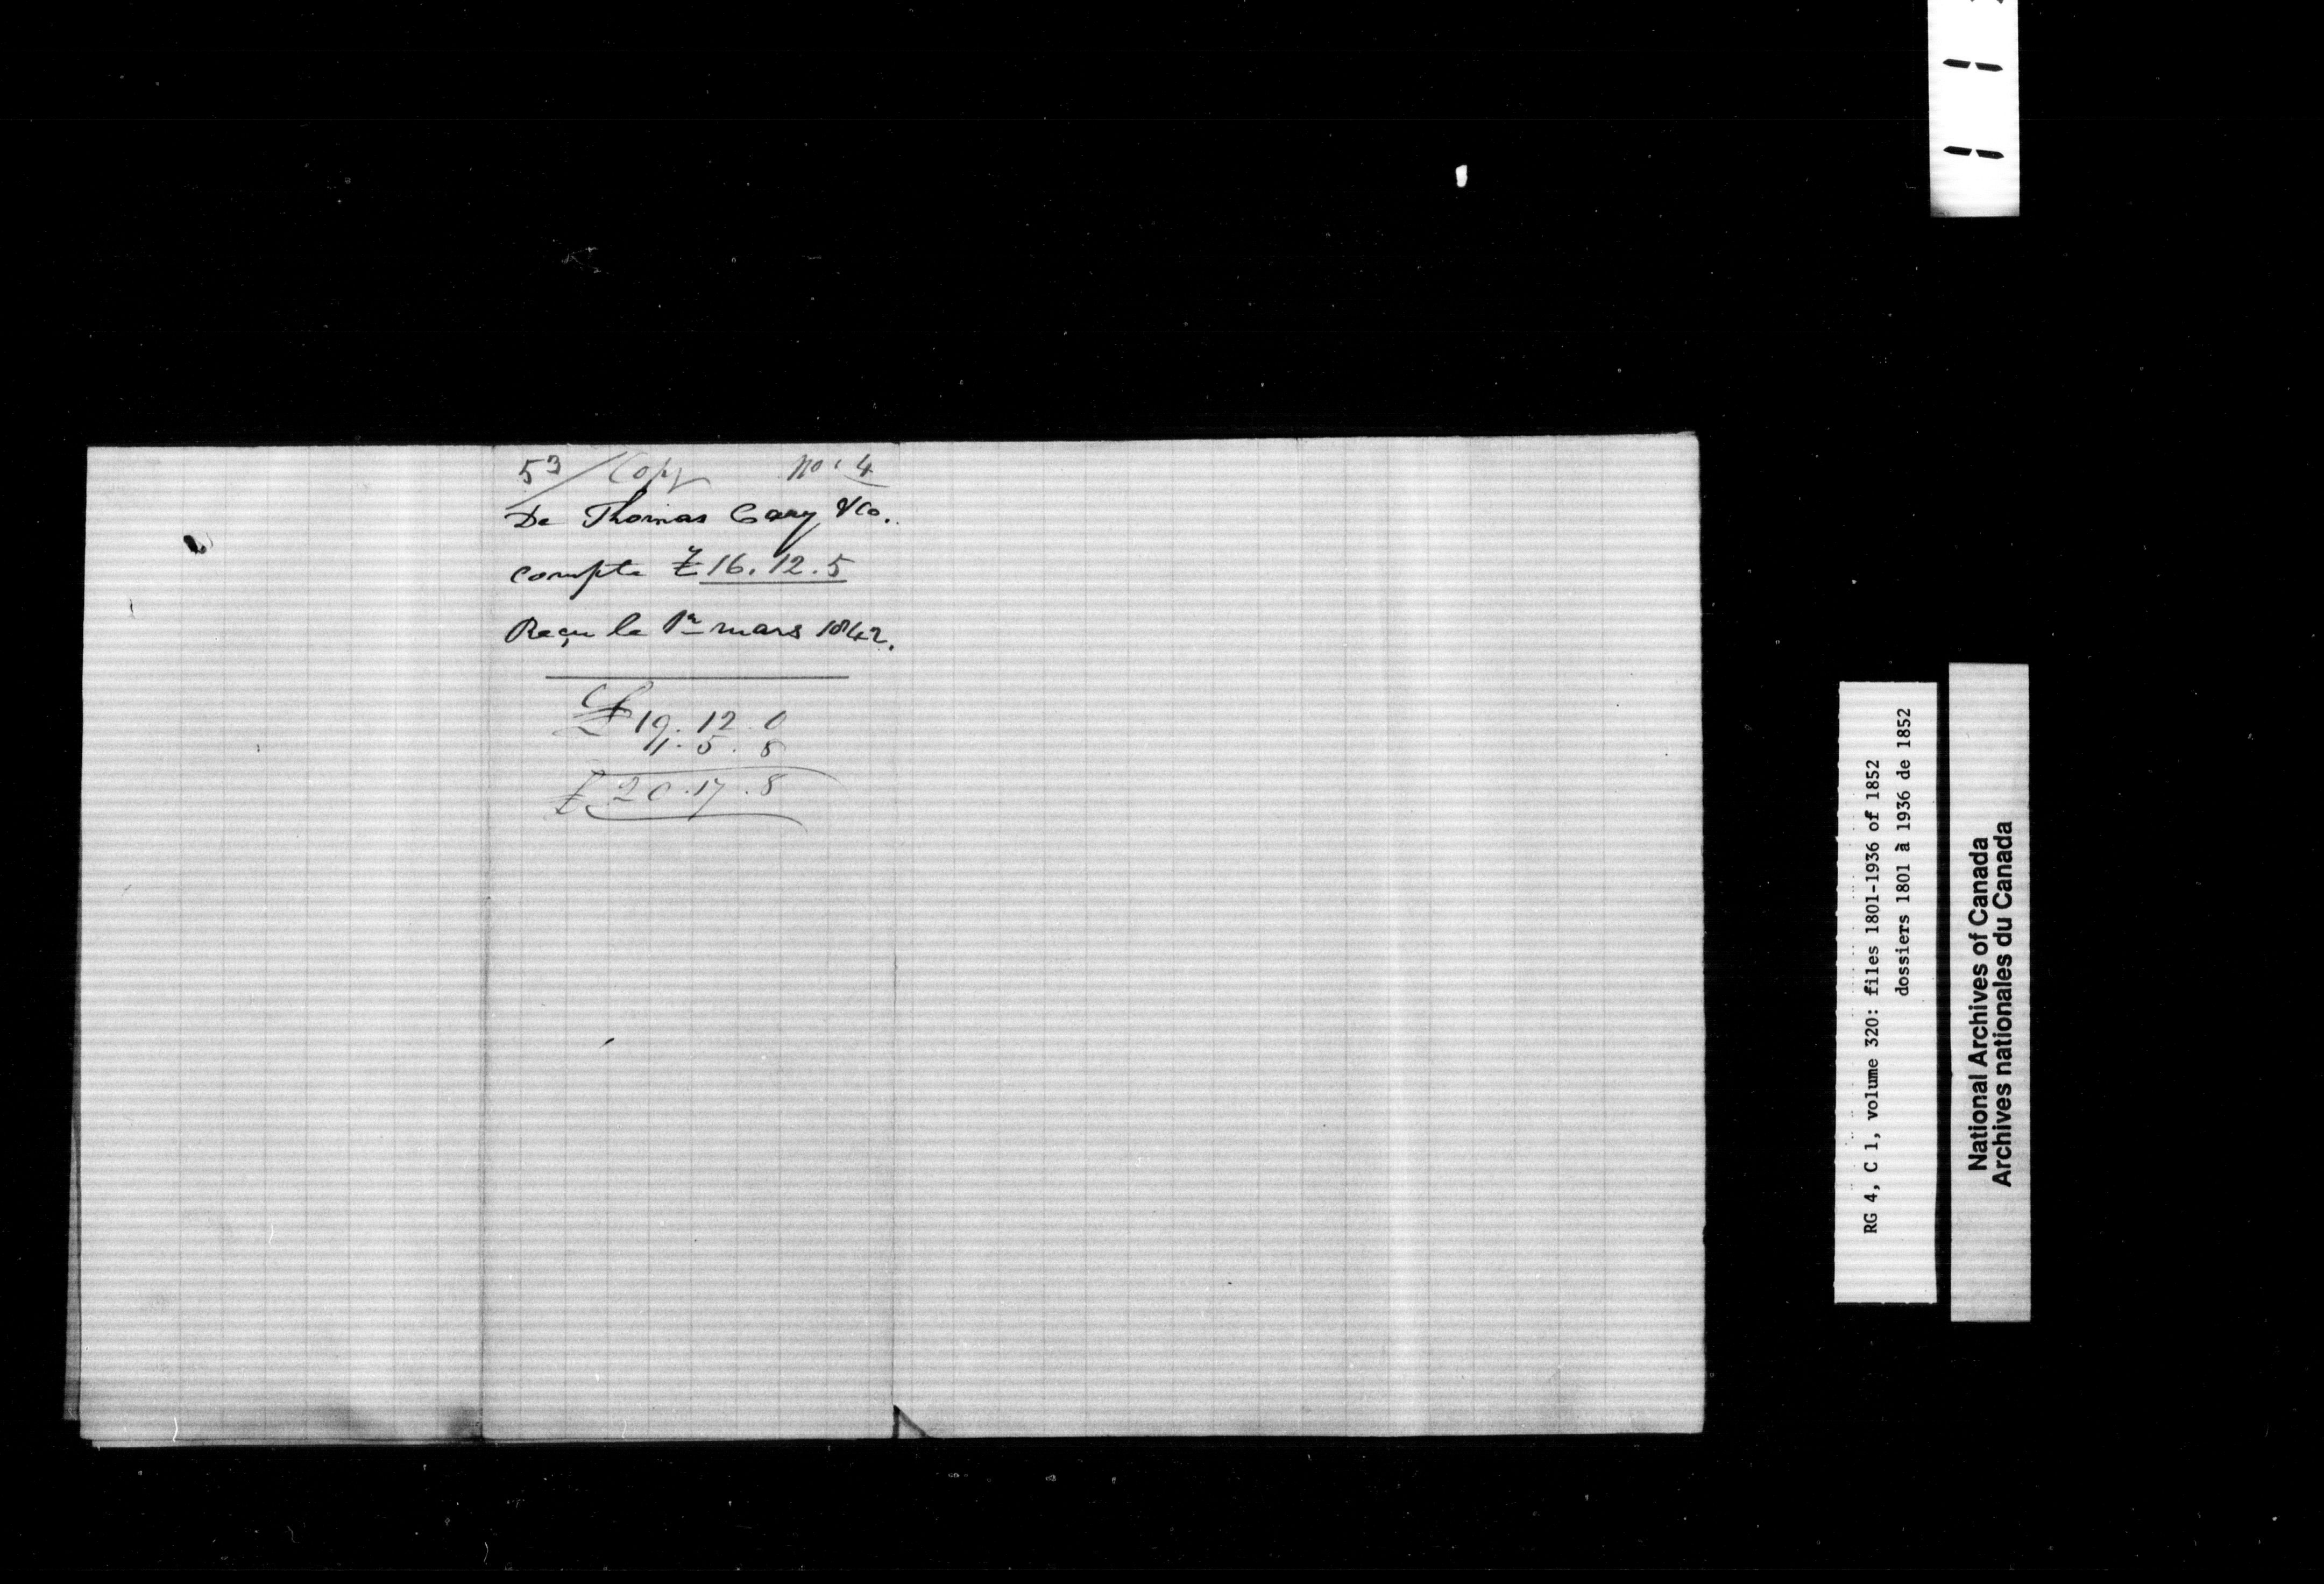 53/ Copy No. 4
De Thomas Cary & Co.
compte £16.12.5
Reçu le 1er mars 1842.
£19.12.0
1.5.8
£20.17.8
RG 4, C 1, volume 320: files 1801-1936 of 1852
dossiers 1801 à 1936 de 1852
National Archives of Canada
Archives nationales du Canada